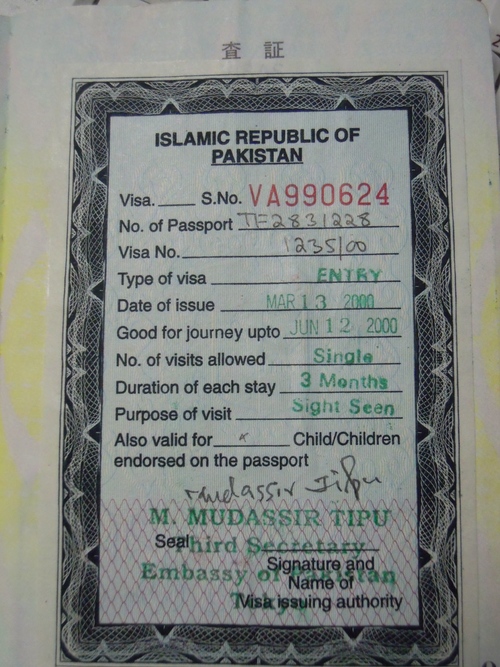 査証
ISLAMIC REPUBLIC OF
PAKISTAN
Visa. S.No. VA990624
No. of Passport TF2831228
Visa No. 1235/00
Type of visa ENTRY
Date of issue MAR 13 2000
Good for journey upto JUN 12 2000
No. of visits allowed Single
Duration of each stay 3 Months
Purpose of visit Sight Seen
Also valid for x Child/Children
endorsed on the passport
Mudassir Tipu
M. MUDASSIR TIPU
Seal Third Secretary
Signature and
Embassy of Pakistan
Name of
Visa issuing authority